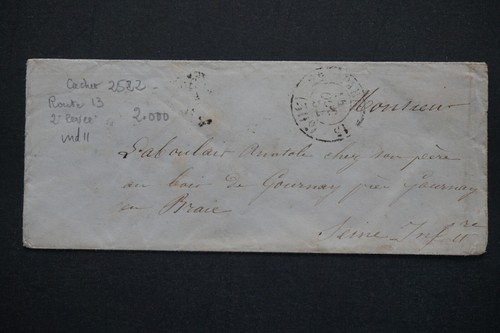 Cachet 2532
Route 13
2e levée 2.000
ind 11
Monsieur
Laboulais Anatole chez son père
au bois de Gournay près Gournay
en Braie
Seine Infre